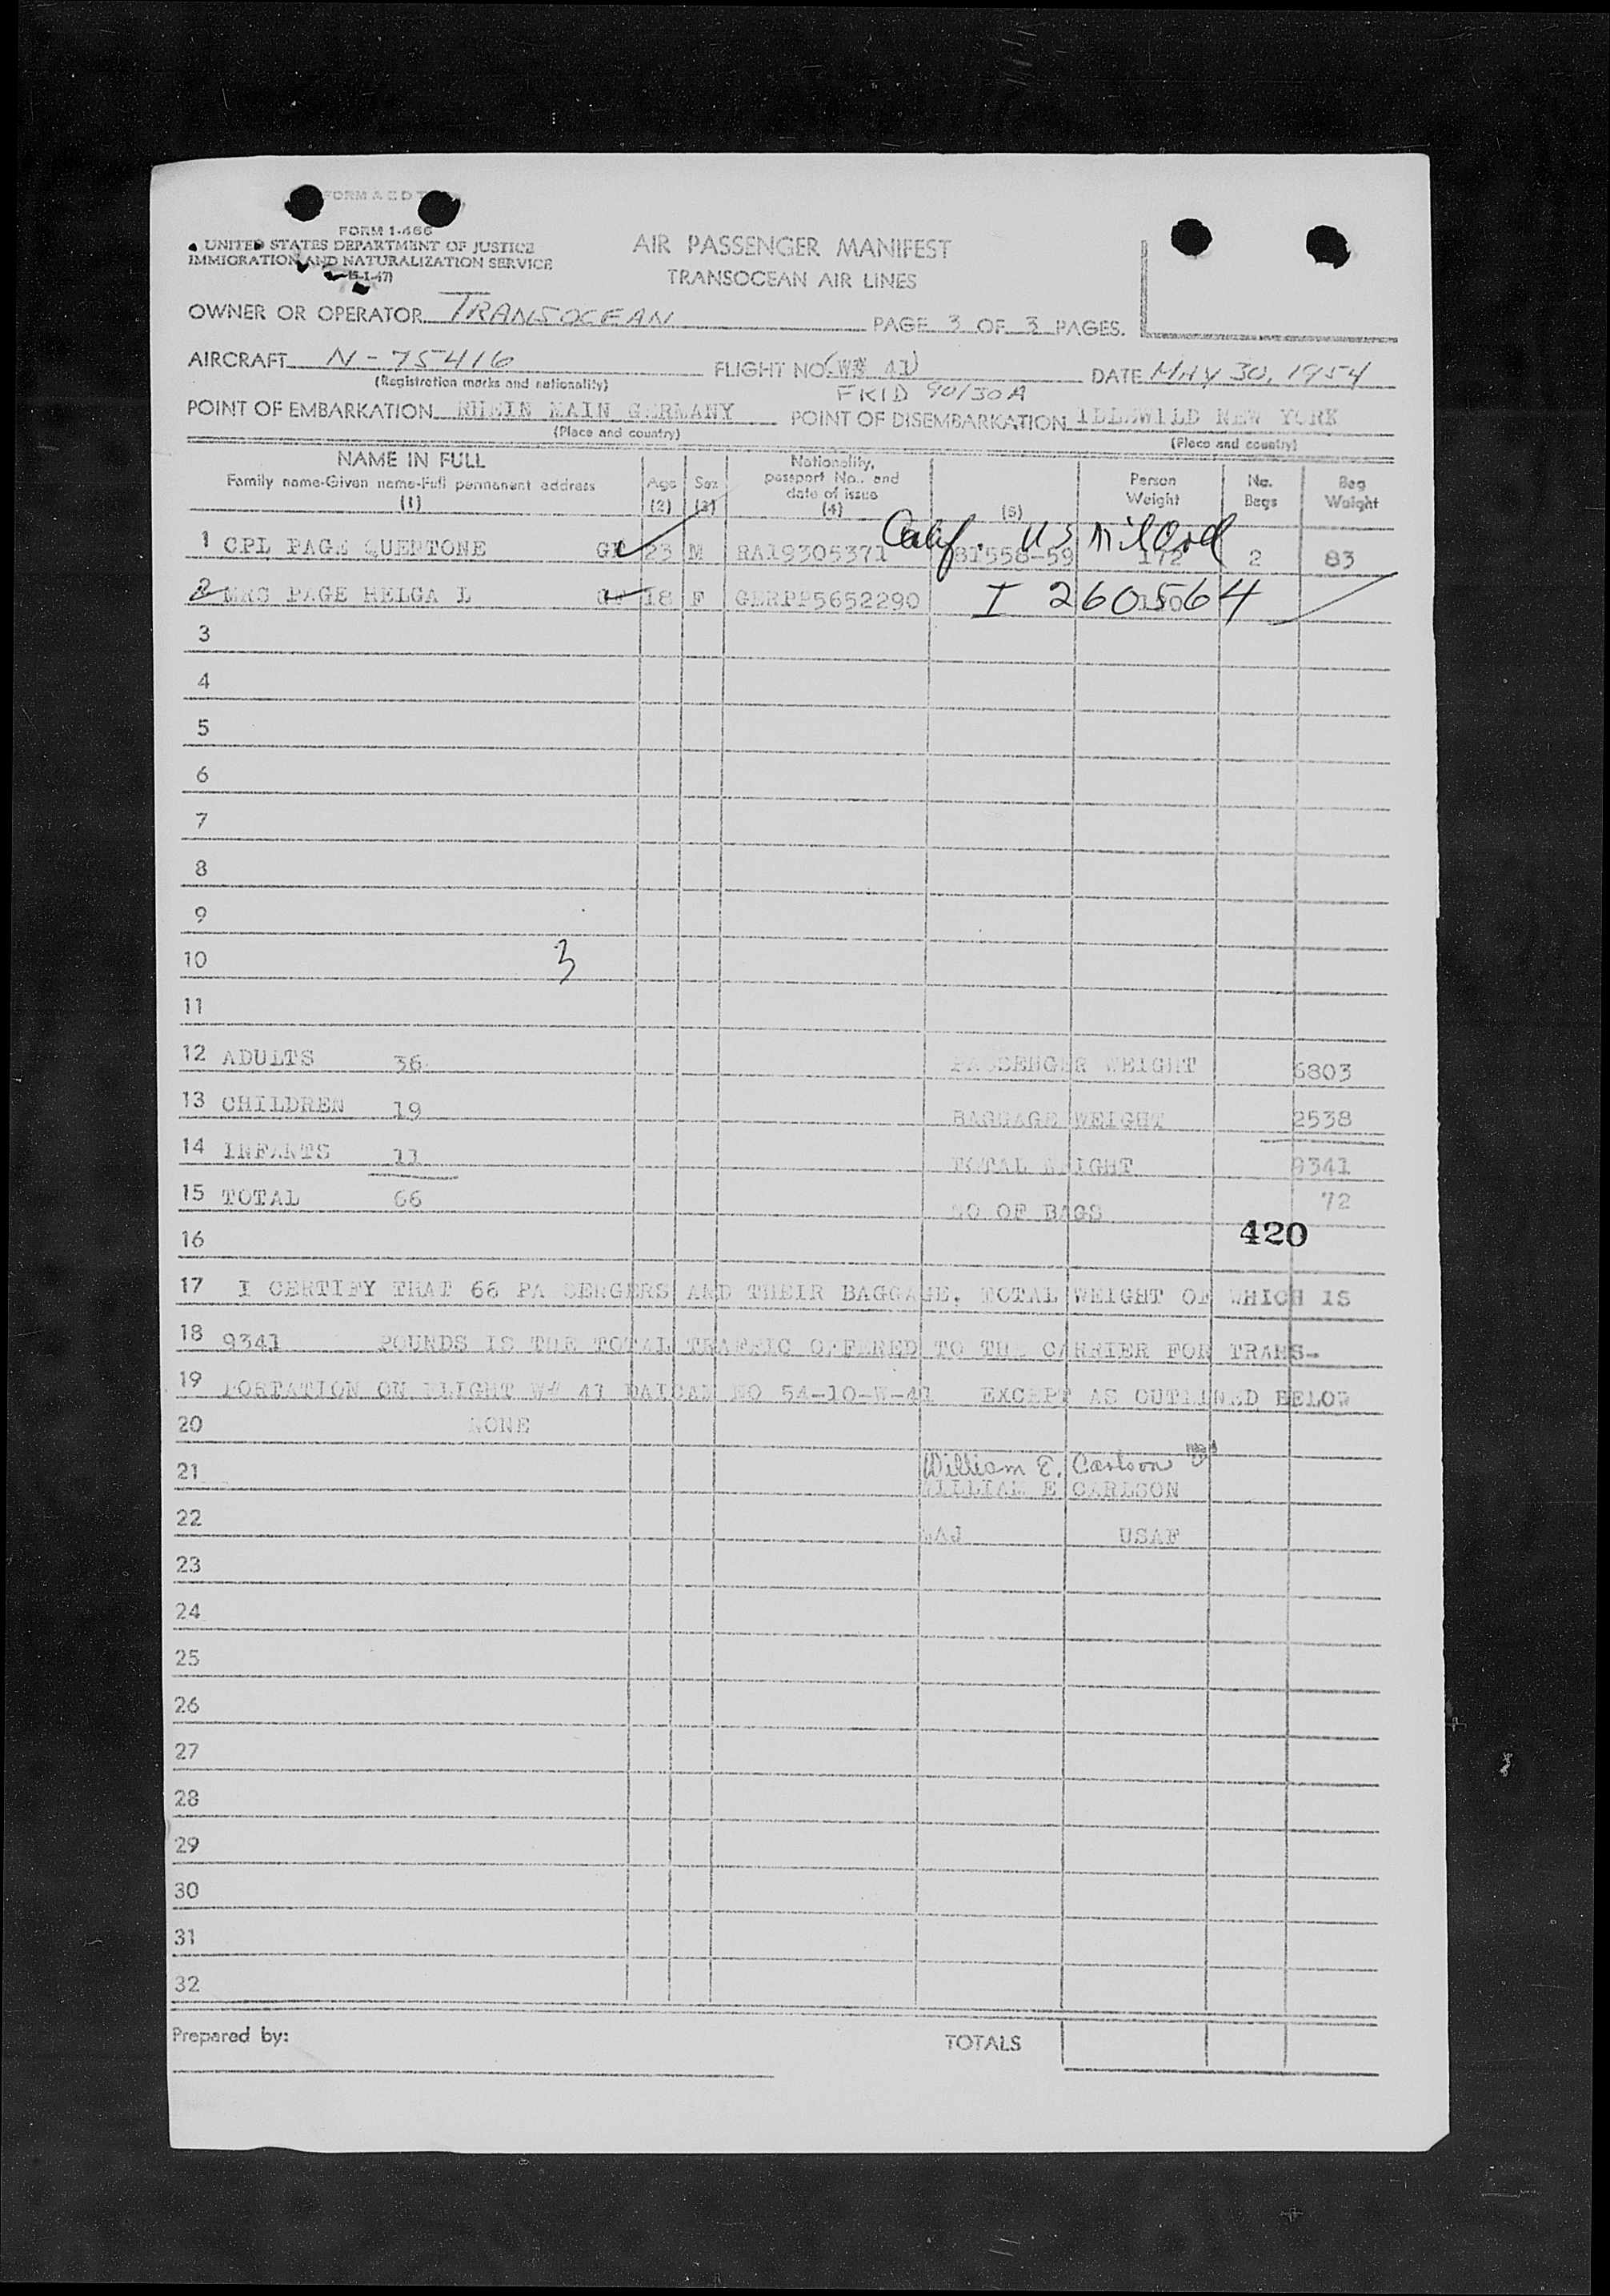 FORM A E D T
FORM I-466
UNITED STATES DEPARTMENT OF JUSTICE
IMMIGRATION AND NATURALIZATION SERVICE
AIR PASSENGER MANIFEST
TRANSOCEAN AIR LINES
OWNER OR OPERATOR TRANSOCEAN PAGE 3 OF 3 PAGES.
AIRCRAFT N-75416 FLIGHT NO. (W# 41) DATE MAY 30, 1954
(Registration marks and nationality) FKID 90/30A
POINT OF EMBARKATION RHEIN MAIN GERMANY POINT OF DISEMBARKATION IDLEWILD NEW YORK
(Place and country) (Place and country)
NAME IN FULL
Family name-Given name-Full permanent address
(1)
Age (2)
Sex (3)
Nationality, passport No., and date of issue
(4)
(5)
Person Weight
No. Bags
Bag Weight
Calif. US Mil Ord
1 CPL PAGE QUENTONE 23 M RA19305371 81558-59 172 2 83
2 MRS PAGE HELGA L 18 F GERPP5652290 I 2605564
3
4
5
6
7
8
9
10 3
11
12 ADULTS 36 PASSENGER WEIGHT 6803
13 CHILDREN 19 BAGGAGE WEIGHT 2538
14 INFANTS 11 TOTAL WEIGHT 9341
15 TOTAL 66 NO OF BAGS 72
16 420
17 I CERTIFY THAT 66 PA SENGERS AND THEIR BAGGAGE, TOTAL WEIGHT OF WHICH IS
18 9341 POUNDS IS THE TOTAL TRAFFIC OFFERED TO THE CARRIER FOR TRANS-
19 PORTATION ON FLIGHT W# 41 NO 54-10-W-41 EXCEPT AS OUTLINED BELOW
20 NONE
21 William E. Carlson
WILLIAM E CARLSON
22 MAJ USAF
23
24
25
26
27
28
29
30
31
32
Prepared by: TOTALS